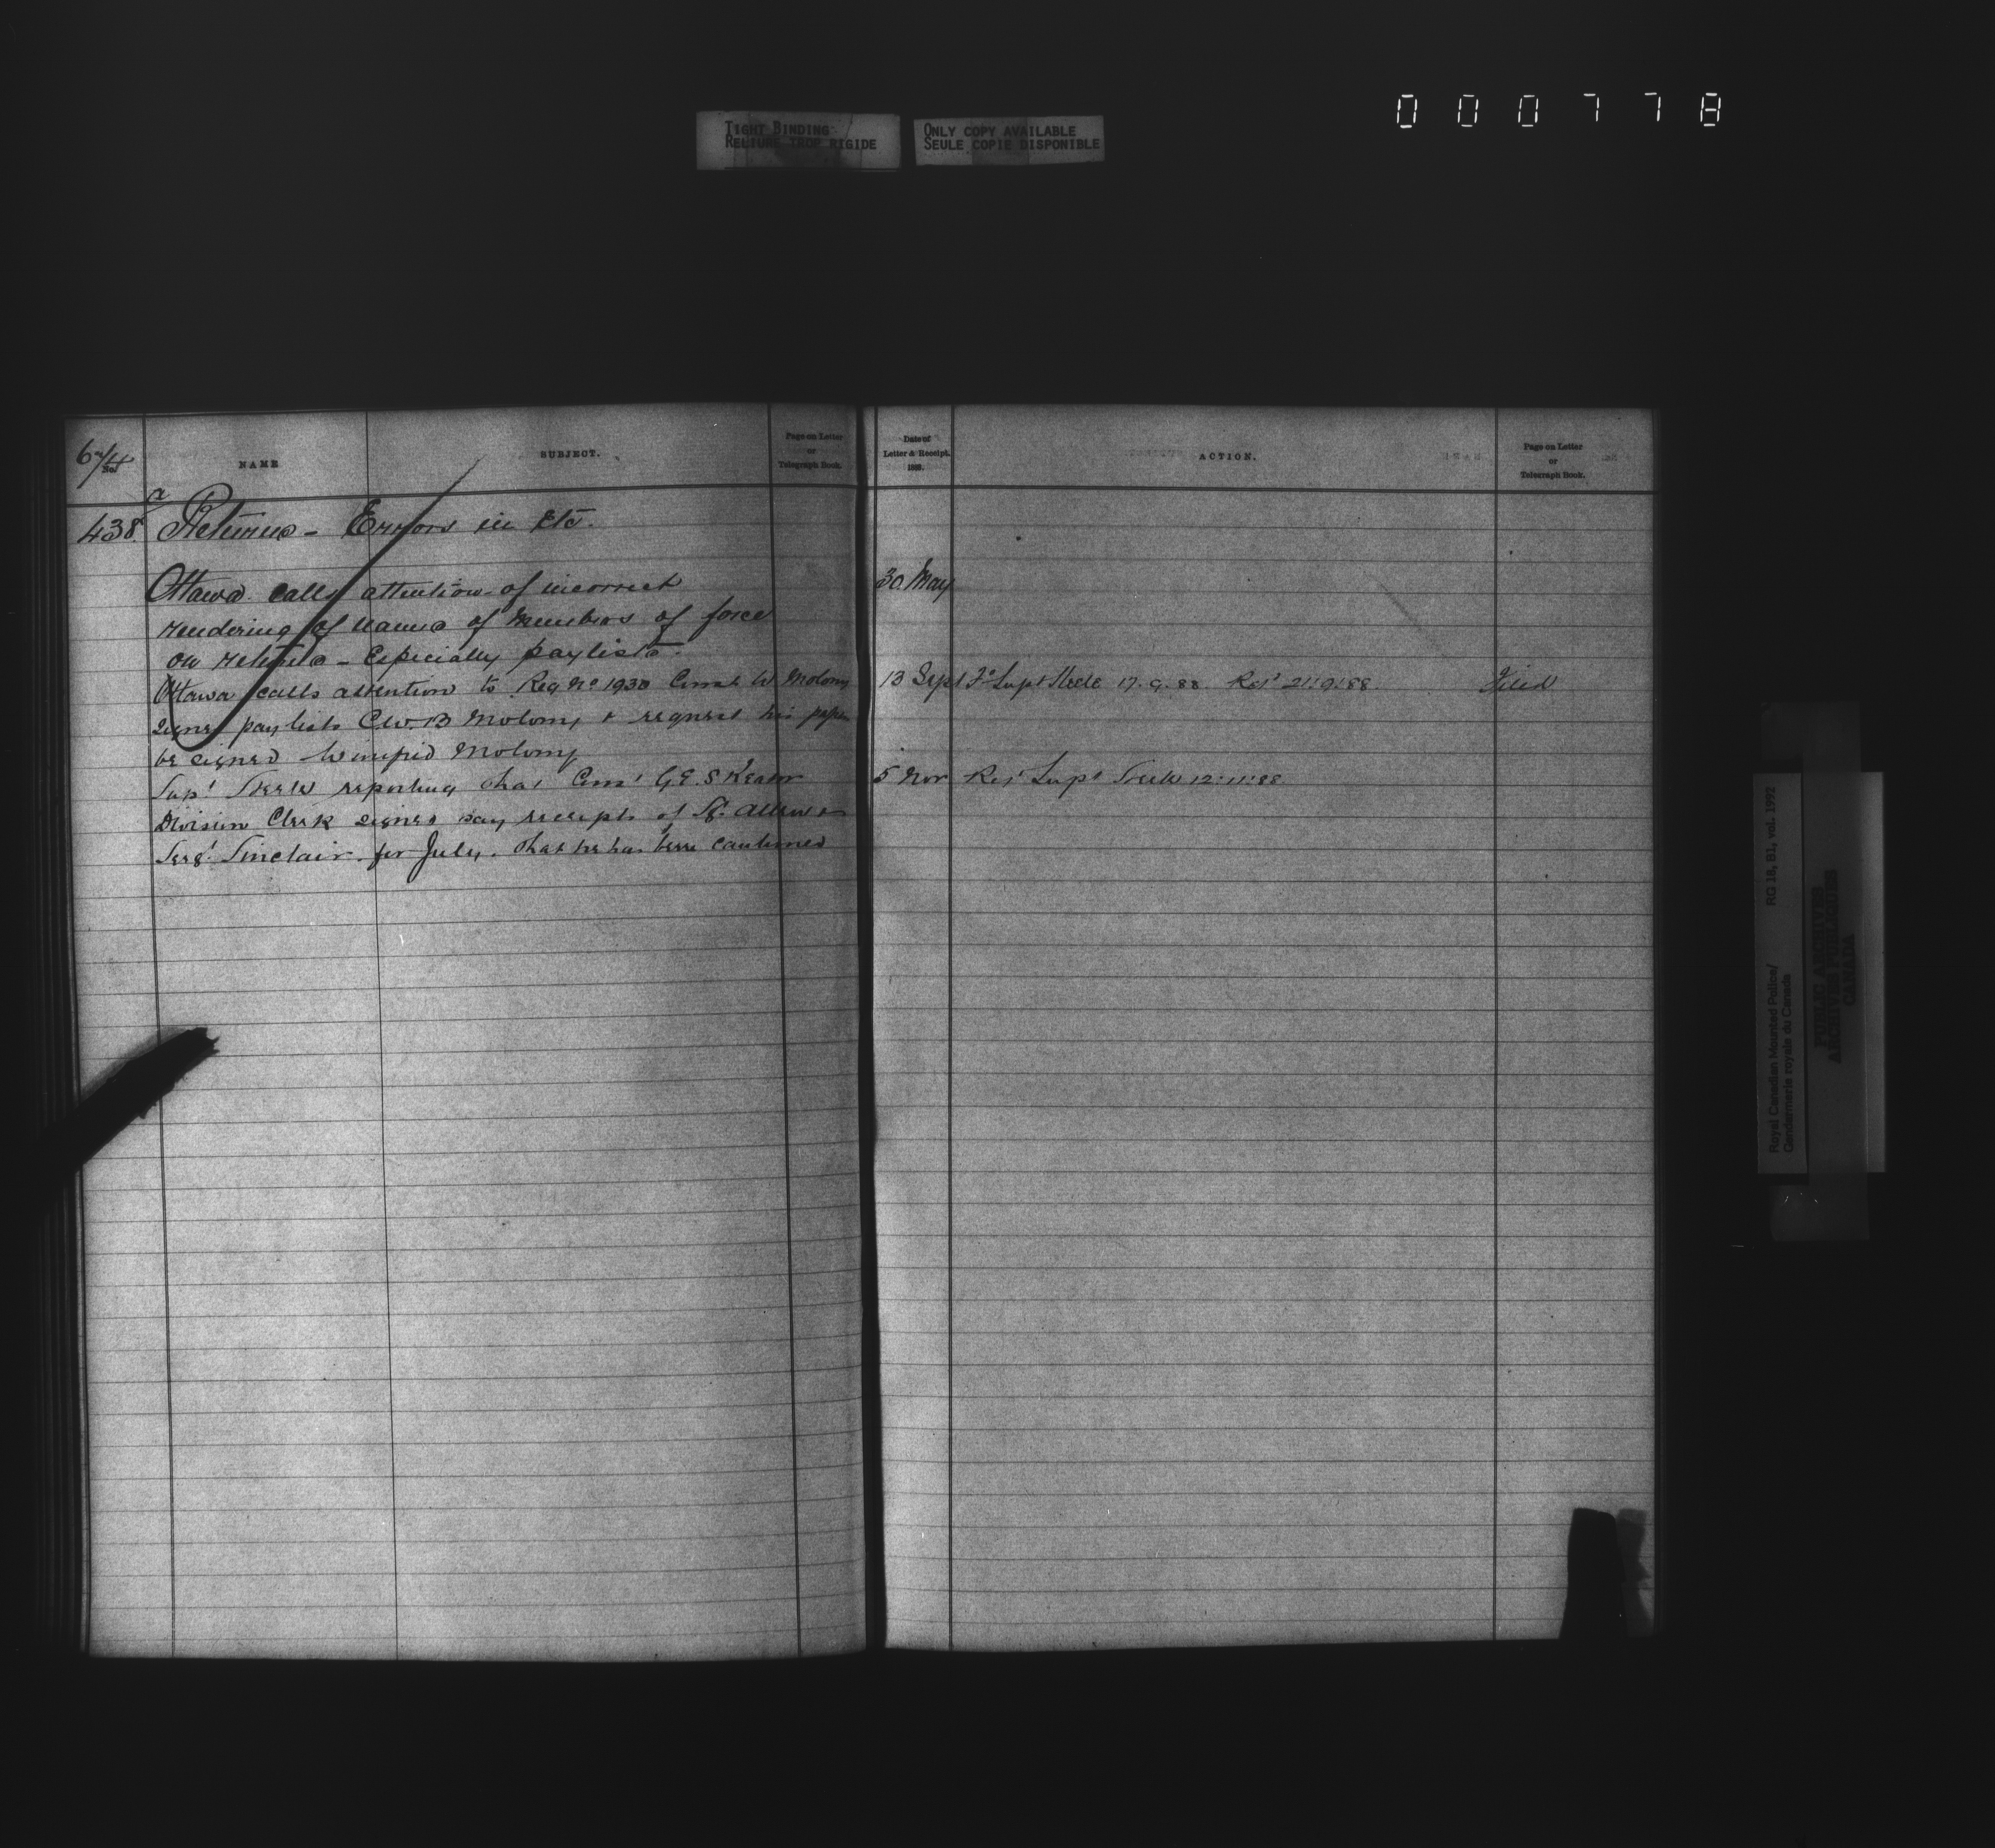 000778
TIGHT BINDING
RELIURE TROP RIGIDE
ONLY COPY AVAILABLE
SEULE COPIE DISPONIBLE
No.
NAME
SUBJECT.
Page on Letter
or
Telegraph Book.
Date of
Letter & Receipt.
1888.
ACTION.
Page on Letter
or
Telegraph Book.
438 Returns - Errors in Etc.
Ottawa calls attention of incorrect
30 May
rendering of names of Members of force
on returns - Especially paylists.
Ottawa calls attention to Reg No 1930 Const W Molony
13 Sept Fd Supt Steele 17.9.88 Ret 21:9:88 Filed
signs paylists C.W.B Molony & request his papers
be signed Winifrid Molony
Supt Steele reporting that Const G.E.S Keator
5 Nov Ret Supt Steele 12:11:88
Division Clerk signed pay receipts of Sgt Allen &
Sergt Sinclair for July. that he has been cautioned
Royal Canadian Mounted Police/ RG 18, B1, vol. 1992
Gendarmerie royale du Canada
PUBLIC ARCHIVES
ARCHIVES PUBLIQUES
CANADA